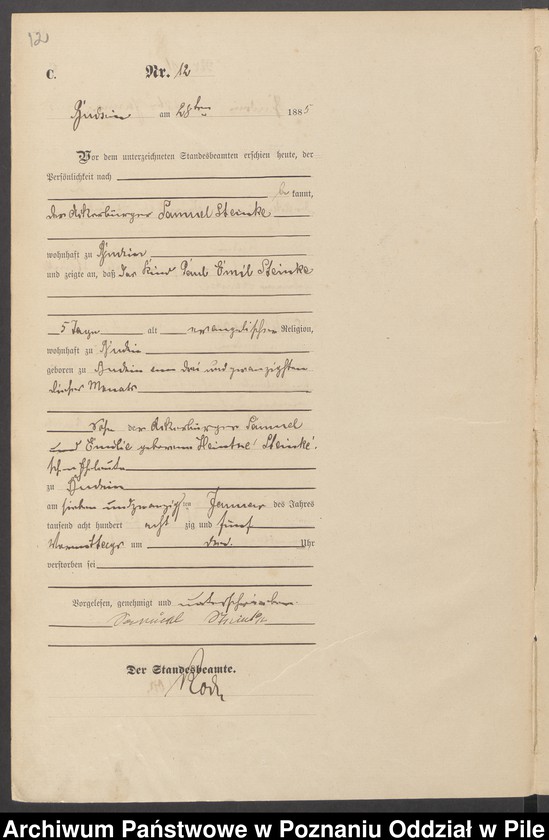 12
C. Nr. 12
Budsin am 28ten 1885
Vor dem unterzeichneten Standesbeamten erschien heute, der
Persönlichkeit nach
be kannt,
der Ackerbürger Samuel Steinke
wohnhaft zu Budsin
und zeigte an, daß das Kind Paul Emil Steinke
5 Tage alt evangelischer Religion,
wohnhaft zu Budsin
geboren zu Budsin am drei und zwanzigsten
dieses Monats
Sohn der Ackerbürger Samuel
und Emilie geborene Steinke'
schen Eheleute
zu Budsin
am sieben und zwanzigsten Januar des Jahres
tausend acht hundert acht zig und fünf
Vormittags um drei Uhr
verstorben sei
Vorgelesen, genehmigt und unterschrieben
Samuel Steinke
Der Standesbeamte.
Archiwum Państwowe w Poznaniu Oddział w Pile